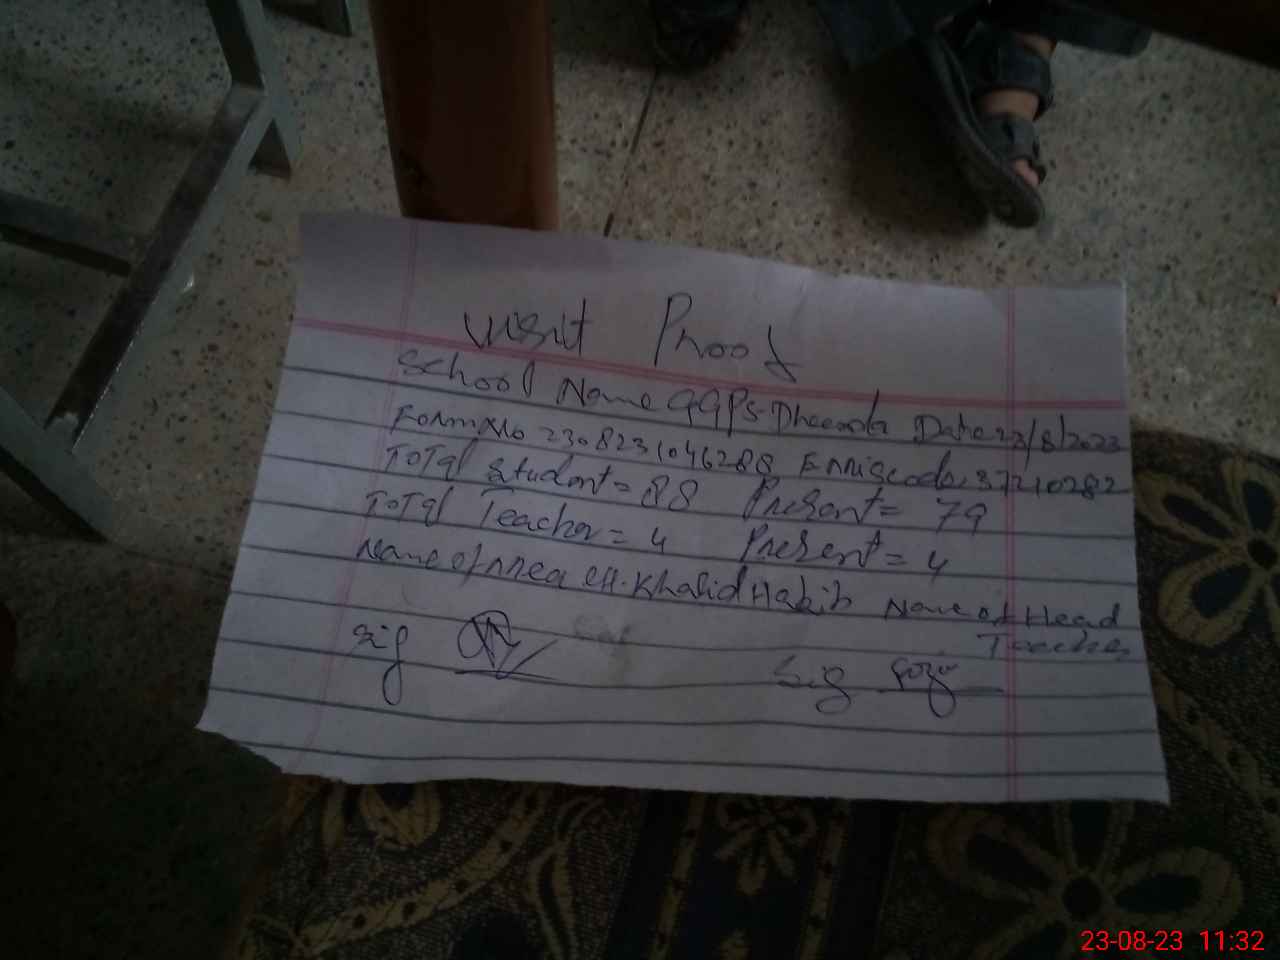 Visit Proof
School Name GGPS Dheenda Date 23/8/2023
Form No 2308231046288 Emiscode 37210282
Total Student = 88 Present = 79
Total Teacher = 4 Present = 4
Name of Area CH. Khalid Habib Name of Head
Teacher
Sig
Sig
23-08-23 11:32